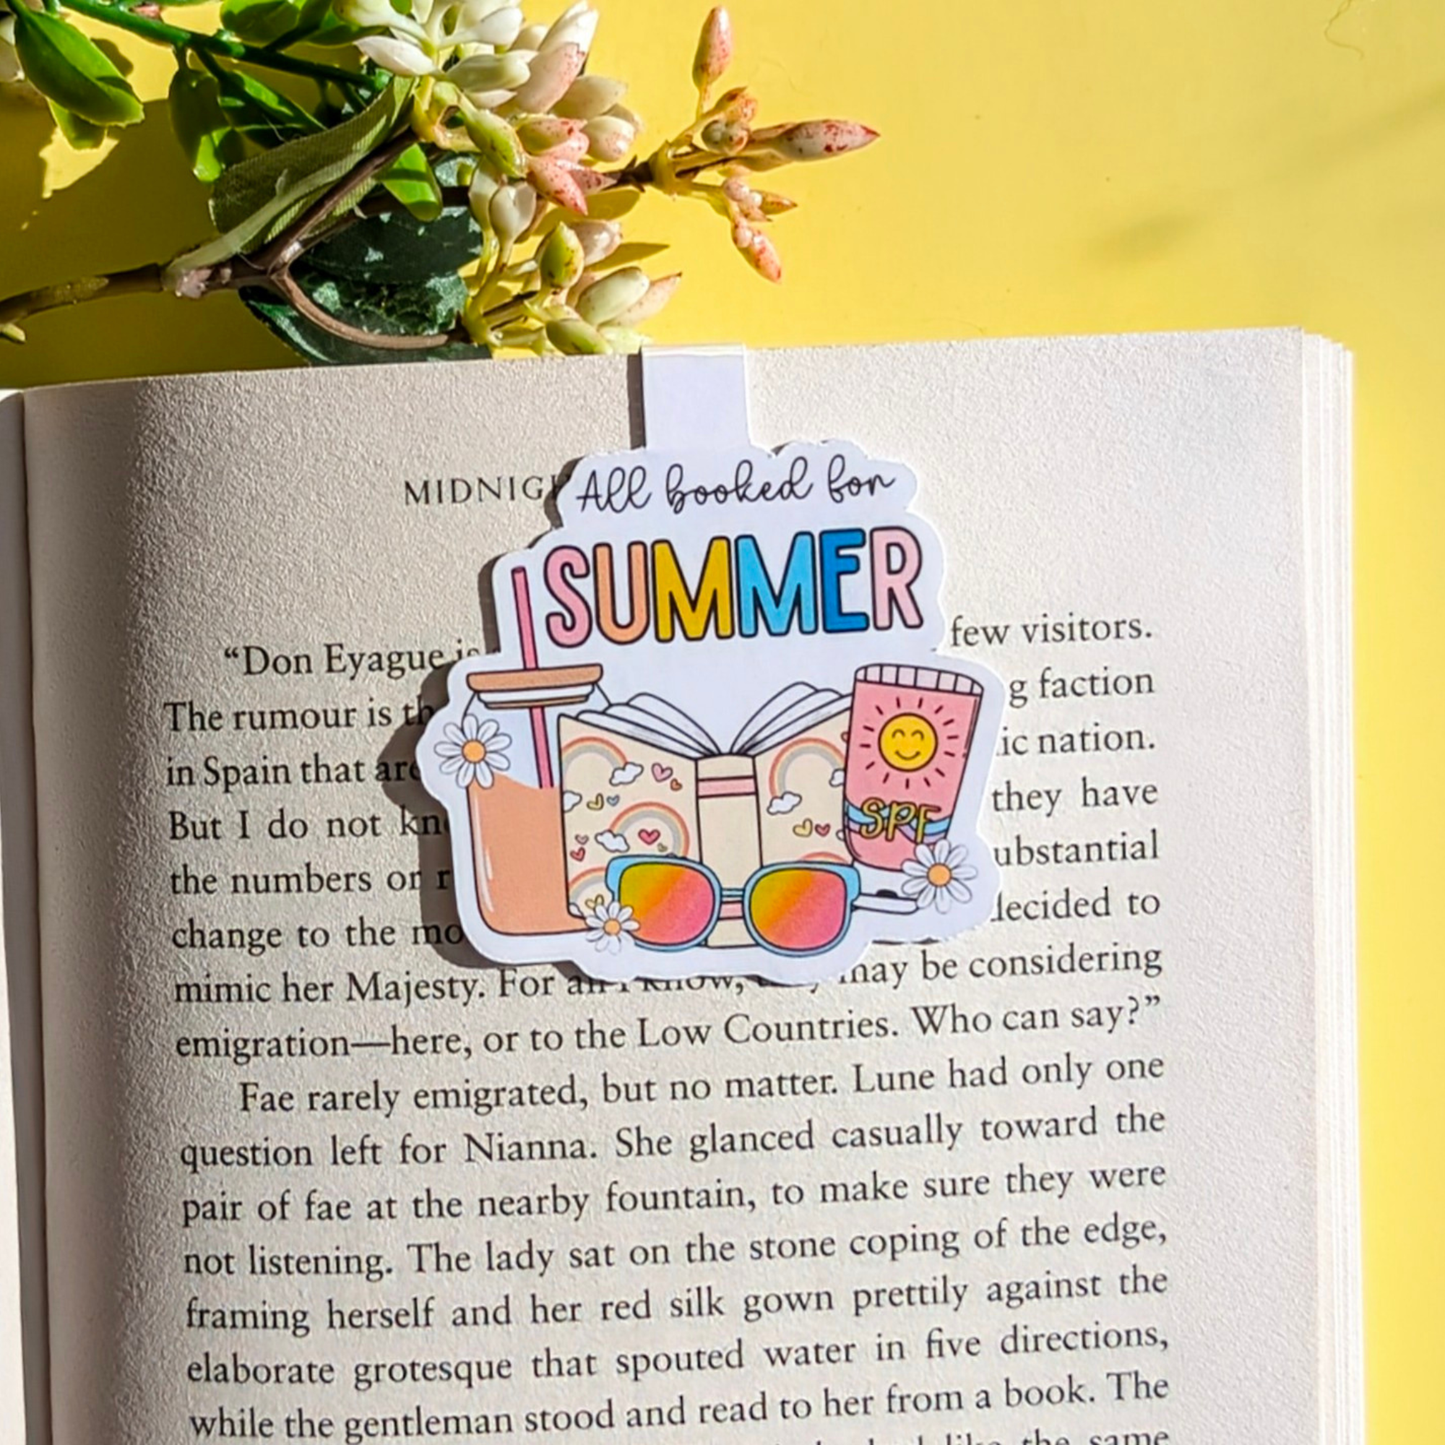 MIDNIG
All booked for
SUMMER
SPF
“Don Eyague is few visitors.
The rumour is th g faction
in Spain that are ic nation.
But I do not kn they have
the numbers or r ubstantial
change to the mo decided to
mimic her Majesty. For all I know, may be considering
emigration—here, or to the Low Countries. Who can say?”
Fae rarely emigrated, but no matter. Lune had only one
question left for Nianna. She glanced casually toward the
pair of fae at the nearby fountain, to make sure they were
not listening. The lady sat on the stone coping of the edge,
framing herself and her red silk gown prettily against the
elaborate grotesque that spouted water in five directions,
while the gentleman stood and read to her from a book. The
like the same